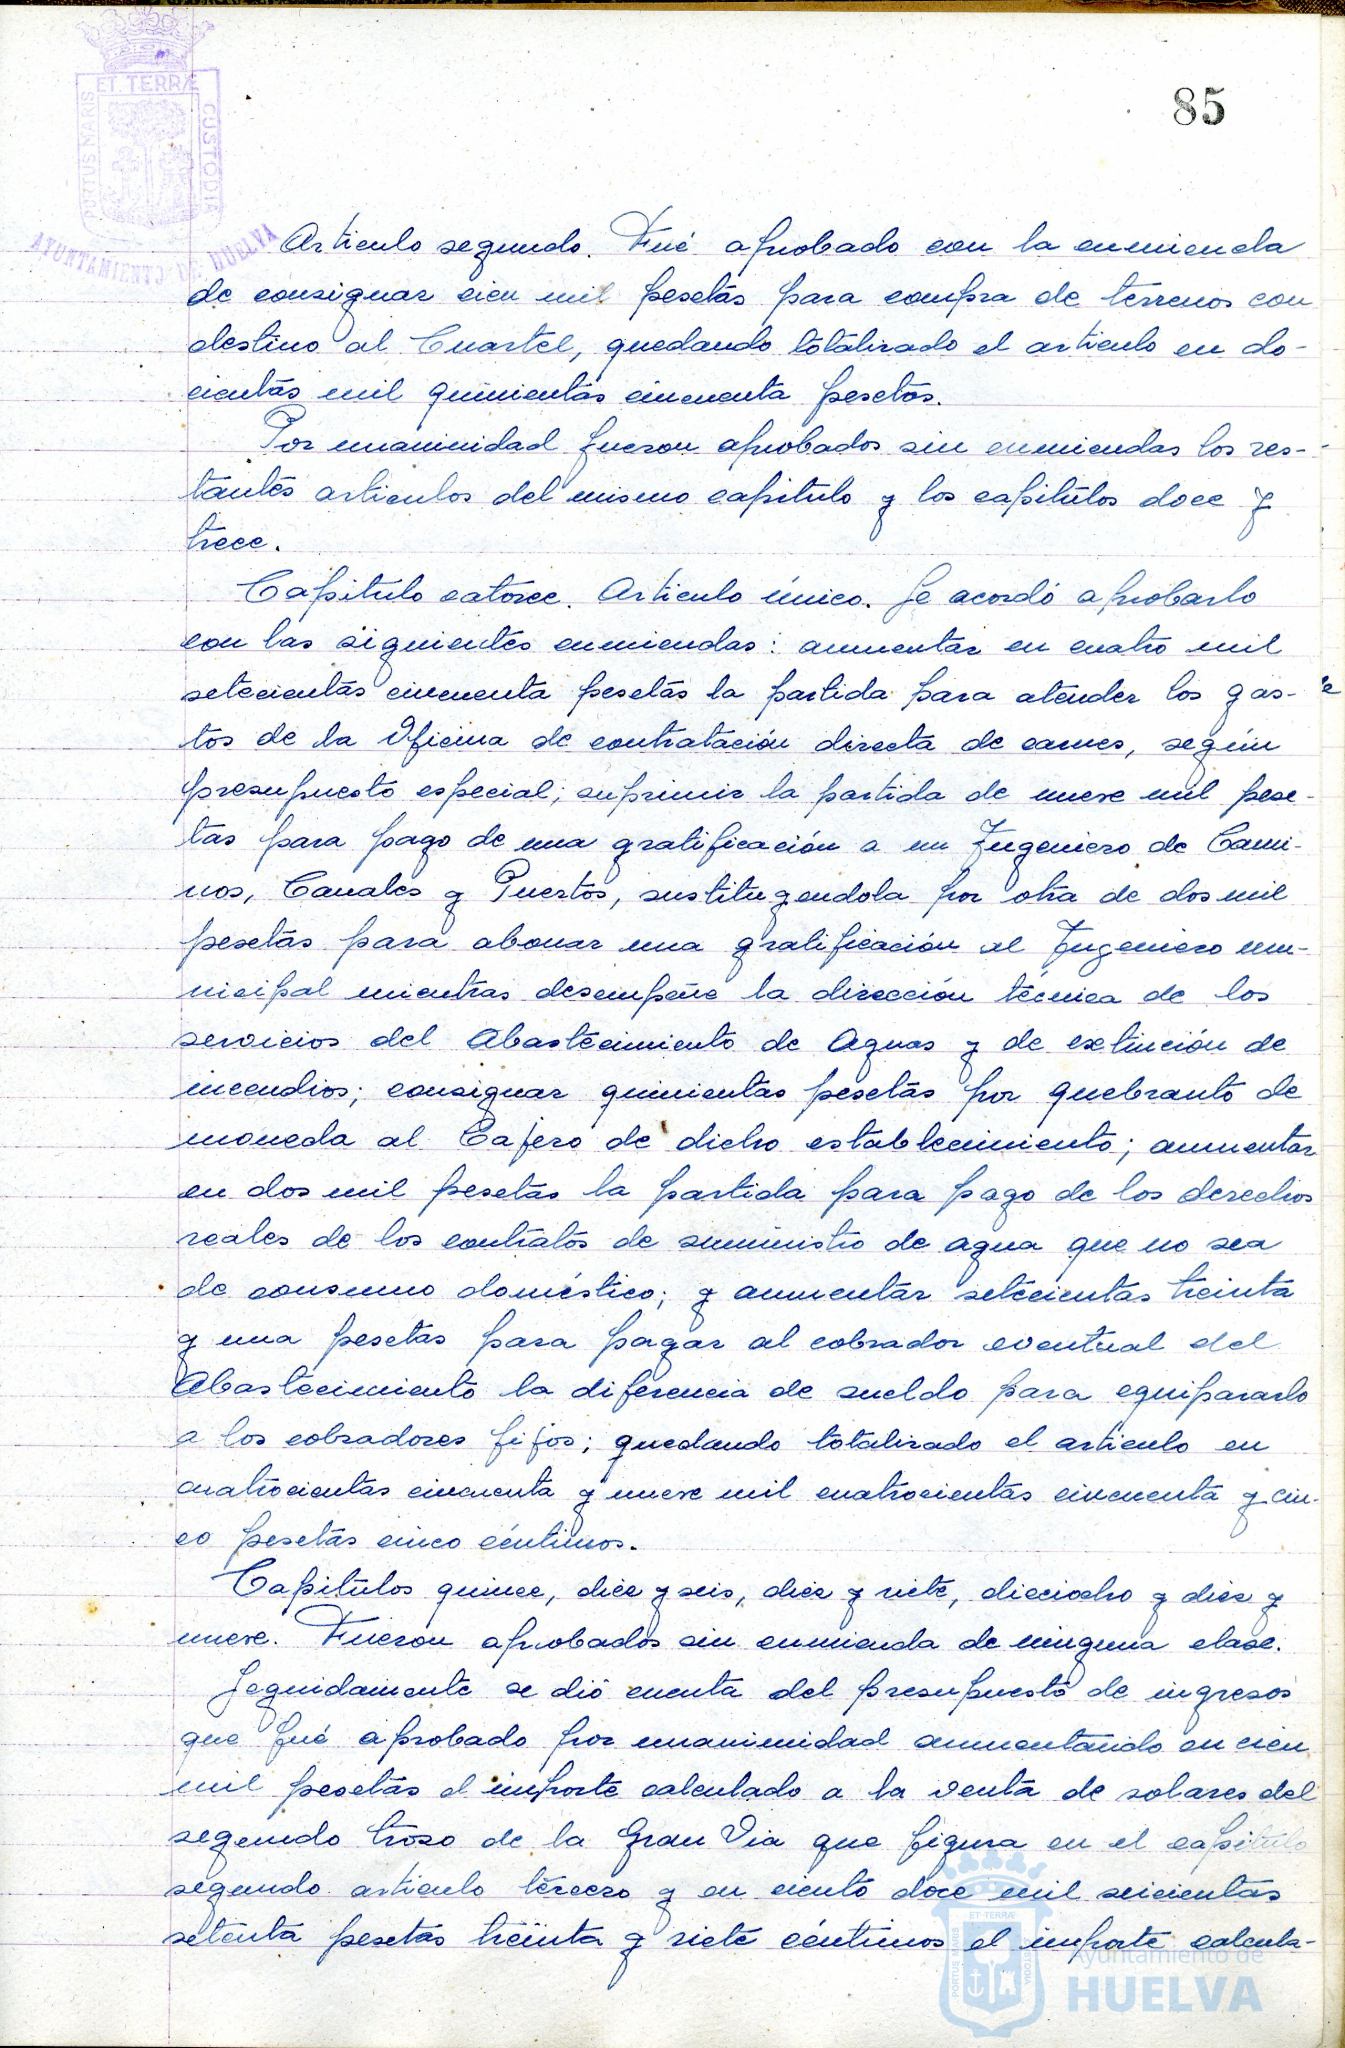 85
ET TERRÆ
PORTUS MARIS
CUSTODIA
AYUNTAMIENTO DE HUELVA
Articulo segundo. Fué aprobado con la enmienda
de consignar cien mil pesetas para compra de terrenos con
destino al Cuartel, quedando totalizado el articulo en do-
cientas mil quinientas cincuenta pesetas.
Por unanimidad fueron aprobados sin enmiendas los res-
tantes articulos del mismo capitulo y los capitulos doce y
trece.
Capitulo catorce. Articulo único. Se acordó aprobarlo
con las siguientes enmiendas: aumentar en cuatro mil
setecientas cincuenta pesetas la partida para atender los gas-
tos de la Oficina de contratación directa de carnes, según
presupuesto especial; suprimir la partida de nueve mil pese-
tas para pago de una gratificación a un Ingeniero de Cami-
nos, Canales y Puertos, sustituyendola por otra de dos mil
pesetas para abonar una gratificación al Ingeniero mu-
nicipal mientras desempeñe la dirección técnica de los
servicios del Abastecimiento de Aguas y de extinción de
incendios; consignar quinientas pesetas por quebranto de
moneda al Cajero de dicho establecimiento; aumentar
en dos mil pesetas la partida para pago de los derechos
reales de los contratos de suministro de agua que no sea
de consumo doméstico; y aumentar setecientas treinta
y una pesetas para pagar al cobrador eventual del
Abastecimiento la diferencia de sueldo para equipararlo
a los cobradores fijos; quedando totalizado el articulo en
cuatrocientas cincuenta y nueve mil cuatrocientas cincuenta y cin-
co pesetas cinco céntimos.
Capitulos quince, diez y seis, diez y siete, dieciocho y diez y
nueve. Fueron aprobados sin enmienda de ninguna clase.
Seguidamente se dió cuenta del presupuesto de ingresos
que fué aprobado por unanimidad aumentando en cien
mil pesetas el importe calculado a la venta de solares del
segundo trozo de la Gran Via que figura en el capitulo
segundo articulo tercero y en ciento doce mil seicientas
setenta pesetas treinta y siete céntimos el importe calcula-
ET TERRÆ
PORTUS MARIS
CUSTODIA
Ayuntamiento de
HUELVA